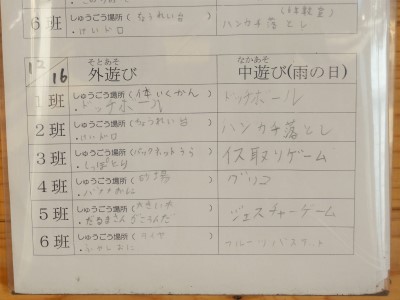 6班 しゅうごう場所( ちょうれい台 )
・けいドロ ハンカチ落とし
12/16 外遊び 中遊び(雨の日)
そとあそ なかあそ
1班 しゅうごう場所(体いくかん)
・ドッチボール ドッチボール
2班 しゅうごう場所( ちょうれい台 )
・けいドロ ハンカチ落とし
3班 しゅうごう場所(バックネットうら)
・しっぽとり イス取りゲーム
4班 しゅうごう場所( 砂場 )
・バナナおに グリコ
5班 しゅうごう場所( )
・だるまさんがころんだ ジェスチャーゲーム
6班 しゅうごう場所( )
フルーツバスケット